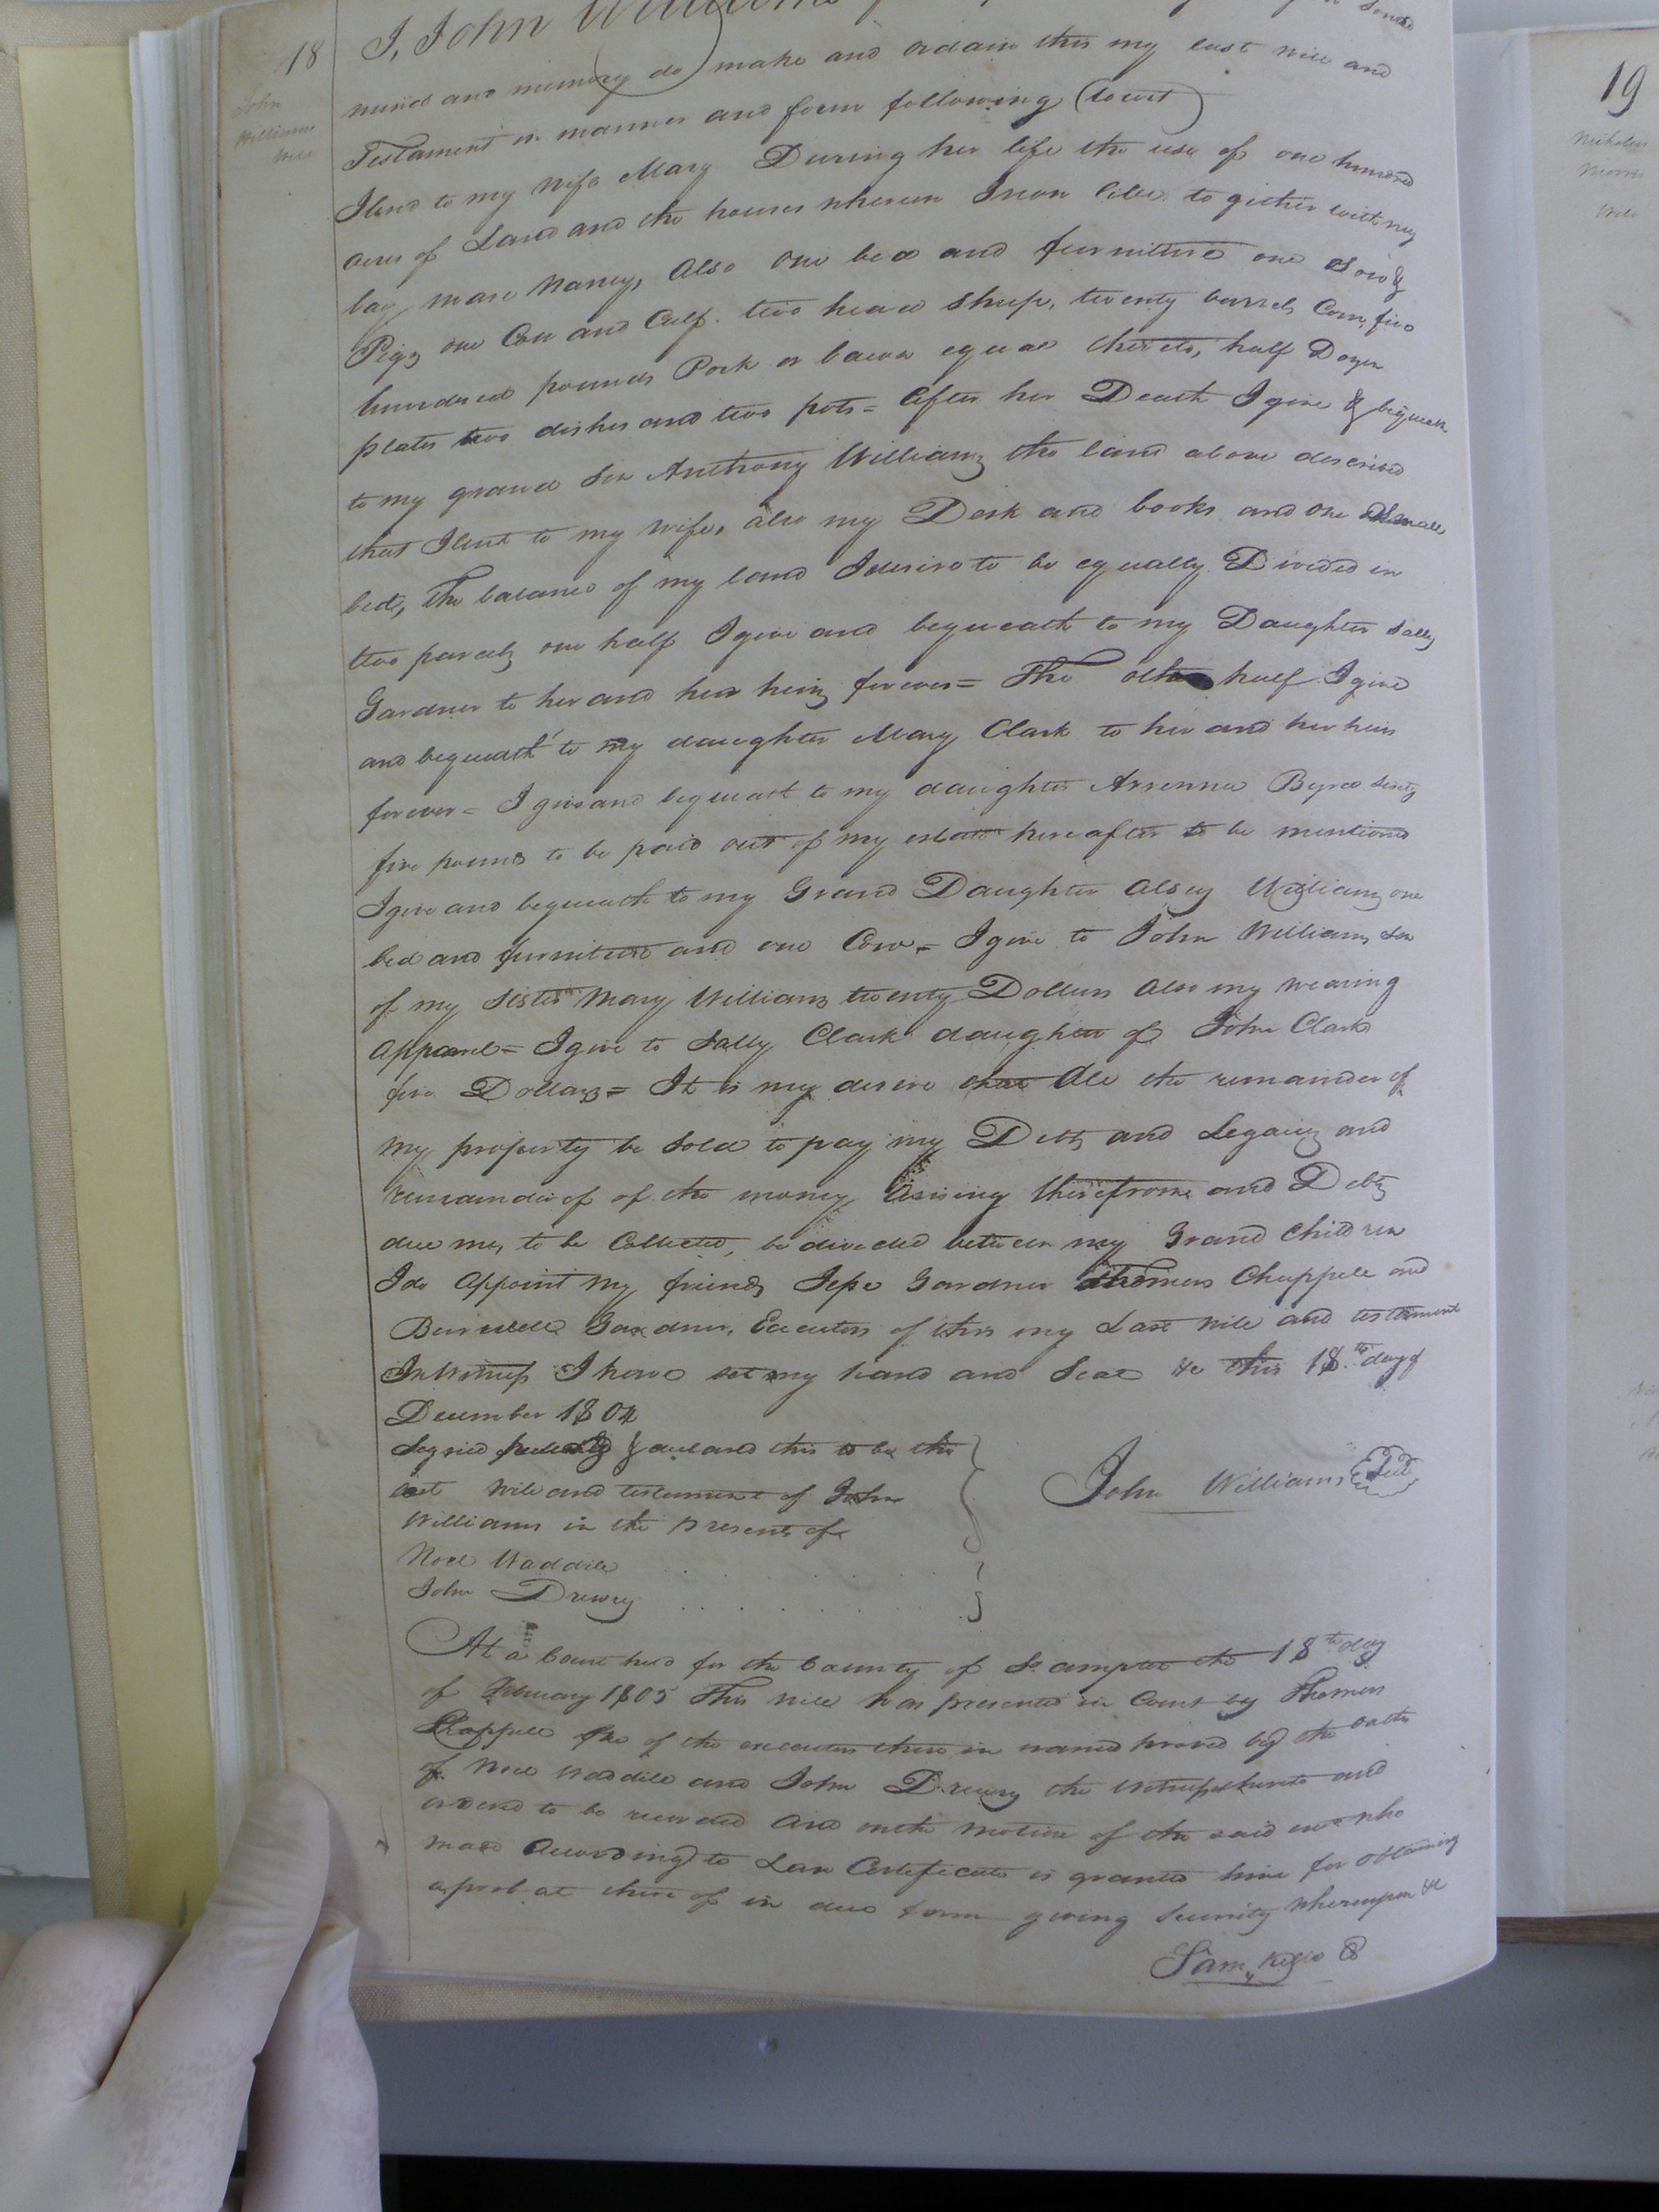 18
John
Williams
Will
I, John Williams
mind and memory do make and ordain this my last will and
Testament in manner and form following (towit)
I lend to my wife Mary During her life the use of one hundred
acres of Land and the houses wherein I now live to gether with my
bay mare Nancy, Also one bed and furniture one Sow &
Pigs one Cow and Calf. two head Sheep, twenty barrels Corn, five
hundred pounds Pork or bacon equal thereto, half Dozen
plates two dishes and two pots = After her Death I give & bequeath
to my grand son Anthony Williams the land above described
that I lent to my wife, also my Desk and books and one small
bed, The balance of my land I desire to be equally Divided in
two parcels one half I give and bequeath to my Daughter Sally
Gardner to her and her heirs forever = The other half I give
and bequeath to my daughter Mary Clark to her and her heirs
forever = I give and bequeath to my daughter
five pounds to be paid out of my estate hereafter to be mentioned
I give and bequeath to my Grand Daughter Alsey Williams one
bed and furniture and one Cow = I give to John Williams son
of my Sister Mary Williams twenty Dollars Also my wearing
Apparel = I give to Sally Clark daughter of John Clark
five Dollars = It is my desire that All the remainder of
my property be Sold to pay my Debts and Legacies and
of the money Arising therefrom and Debts
due me, to be Collected, be divided between my Grand Children
I do Appoint my friends Jesse Gardner Thomas Chappell and
Burwell Gardner, Executors of this my Last Will and testament
In Witness I have set my hand and Seal &c this 18.th day of
December 1804
and this to be the
last Will and testament of John
Williams in the presents of
Noel Waddill
John Drewry
John Williams Seal
At a Court held for the County of So ampton the 18th day
of February 1805 This will was presented in Court by Thomas
Chappell one of the executors there in named proved by the oaths
of Noel Waddill and John Drewry the Witnesses and
ordered to be recorded And on the motion of the said who
made According to Law Certificate is granted him for obtaining
a probat there of in due form giving Security Whereupon &c
Sam. Kello
19
Nicholas
Morris
Will